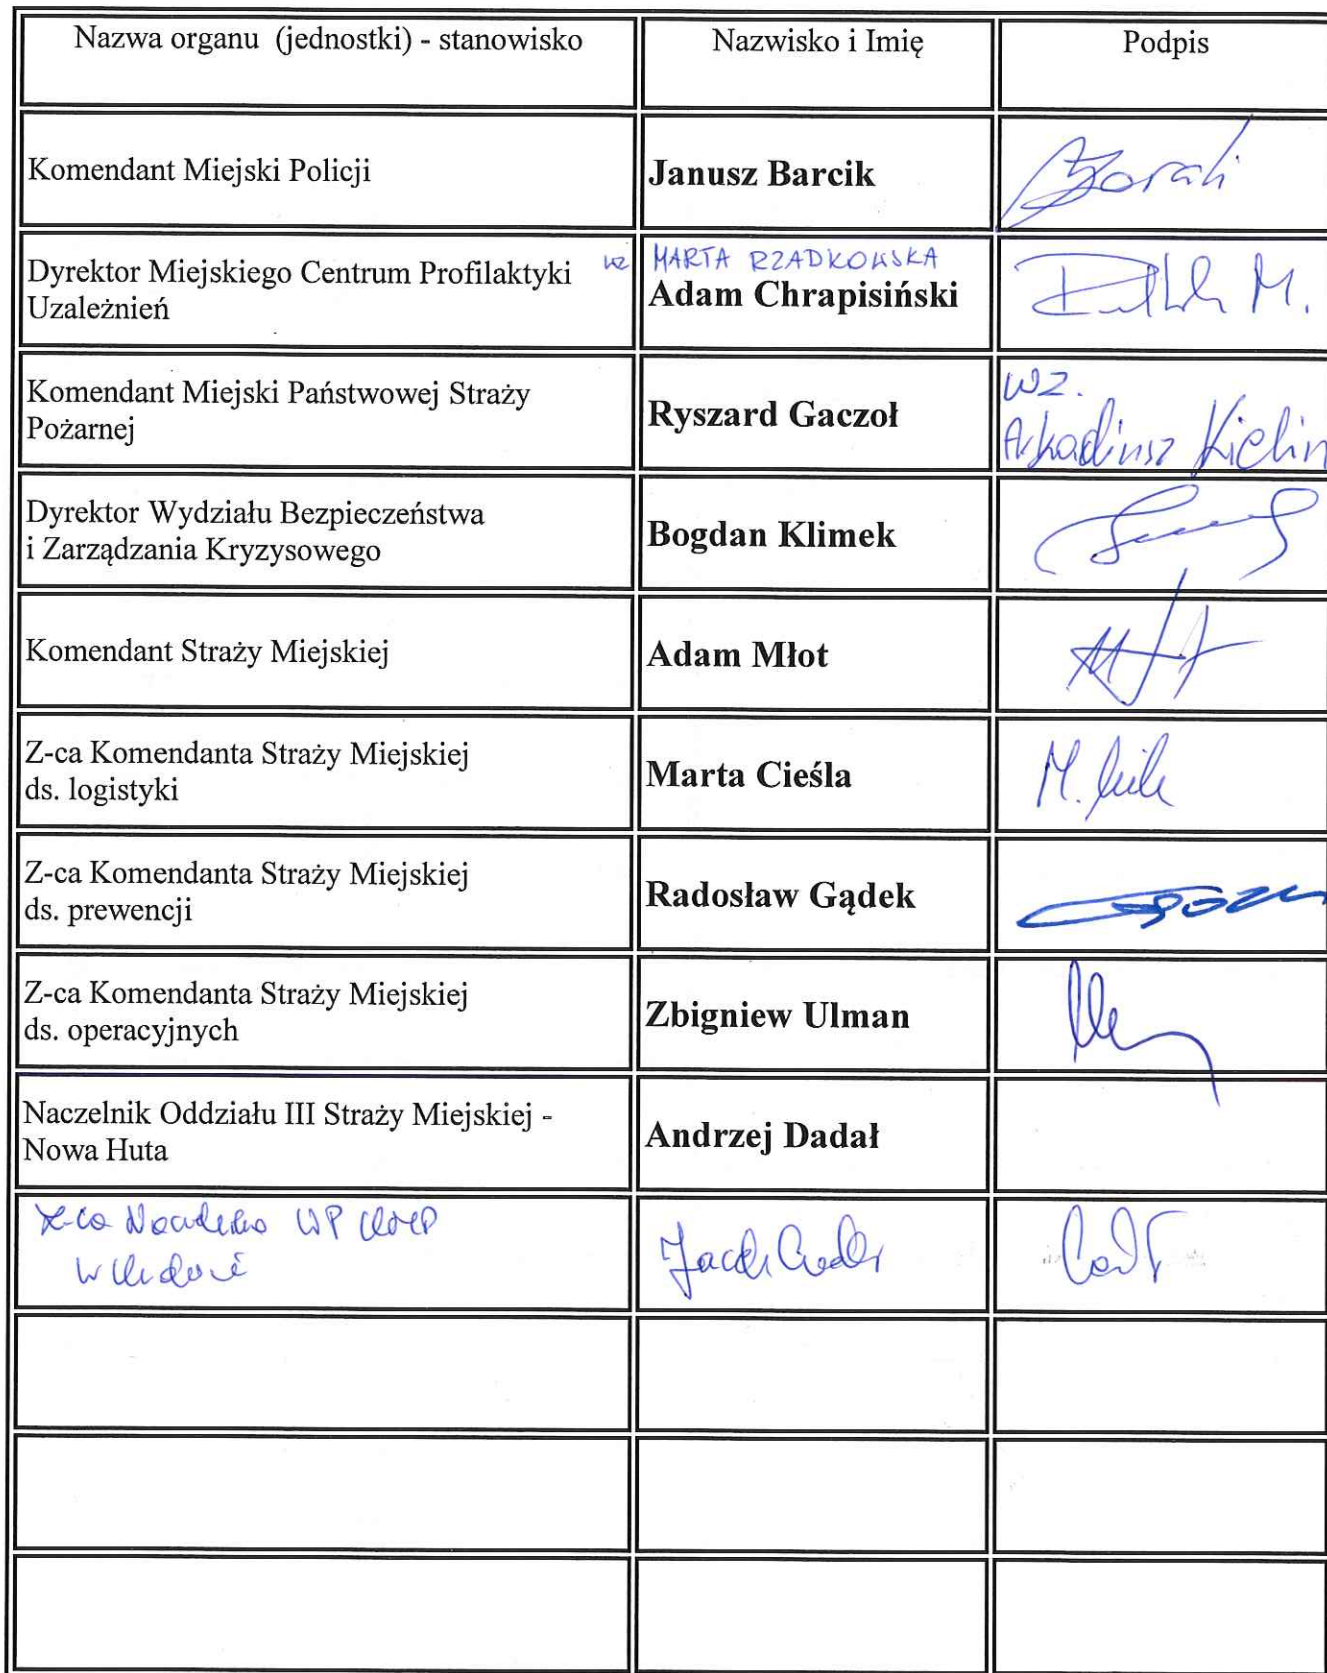 Nazwa organu (jednostki) - stanowisko
Nazwisko i Imię
Podpis
Komendant Miejski Policji
Janusz Barcik
Dyrektor Miejskiego Centrum Profilaktyki
Uzależnień
wz MARTA RZADKOWSKA
Adam Chrapisiński
M.
Komendant Miejski Państwowej Straży
Pożarnej
Ryszard Gaczoł
WZ.
Arkadiusz Kielin
Dyrektor Wydziału Bezpieczeństwa
i Zarządzania Kryzysowego
Bogdan Klimek
Komendant Straży Miejskiej
Adam Młot
Z-ca Komendanta Straży Miejskiej
ds. logistyki
Marta Cieśla
M.
Z-ca Komendanta Straży Miejskiej
ds. prewencji
Radosław Gądek
Z-ca Komendanta Straży Miejskiej
ds. operacyjnych
Zbigniew Ulman
Naczelnik Oddziału III Straży Miejskiej -
Nowa Huta
Andrzej Dadał
Z-ca Naczelnika WP KMP
w Krakowie
Jacek